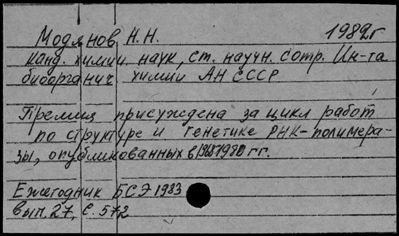 Модянов, Н.Н. 1982г
канд. химии. наук, ст. научн. сотр. Ин-та
биоорганич. химии АН СССР
Премия присуждена за цикл работ
по структуре и генетике РНК-полимера-
зы, опубликованных в 1980 гг.
Ежегодник БСЭ 1983
вып. 27, с. 572